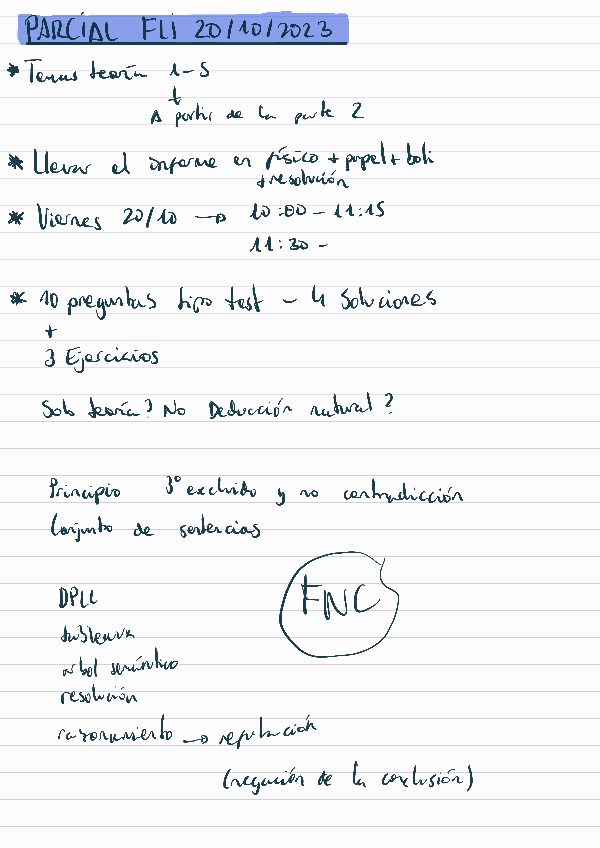 PARCIAL FLI 20/10/2023
* Temas teoría 1-5
↓
A partir de la parte 2
* Llevar el informe en físico + papel + boli
+ resolución
* Viernes 20/10 → 10:00 - 11:15
11:30 -
* 10 preguntas tipo test - 4 soluciones
+
3 Ejercicios
Solo teoría? No Deducción natural?
Principio 3º excluido y no contradicción
Conjunto de sentencias
FNC
DPLL
tableaux
árbol semántico
resolución
razonamiento → refutación
(negación de la conclusión)